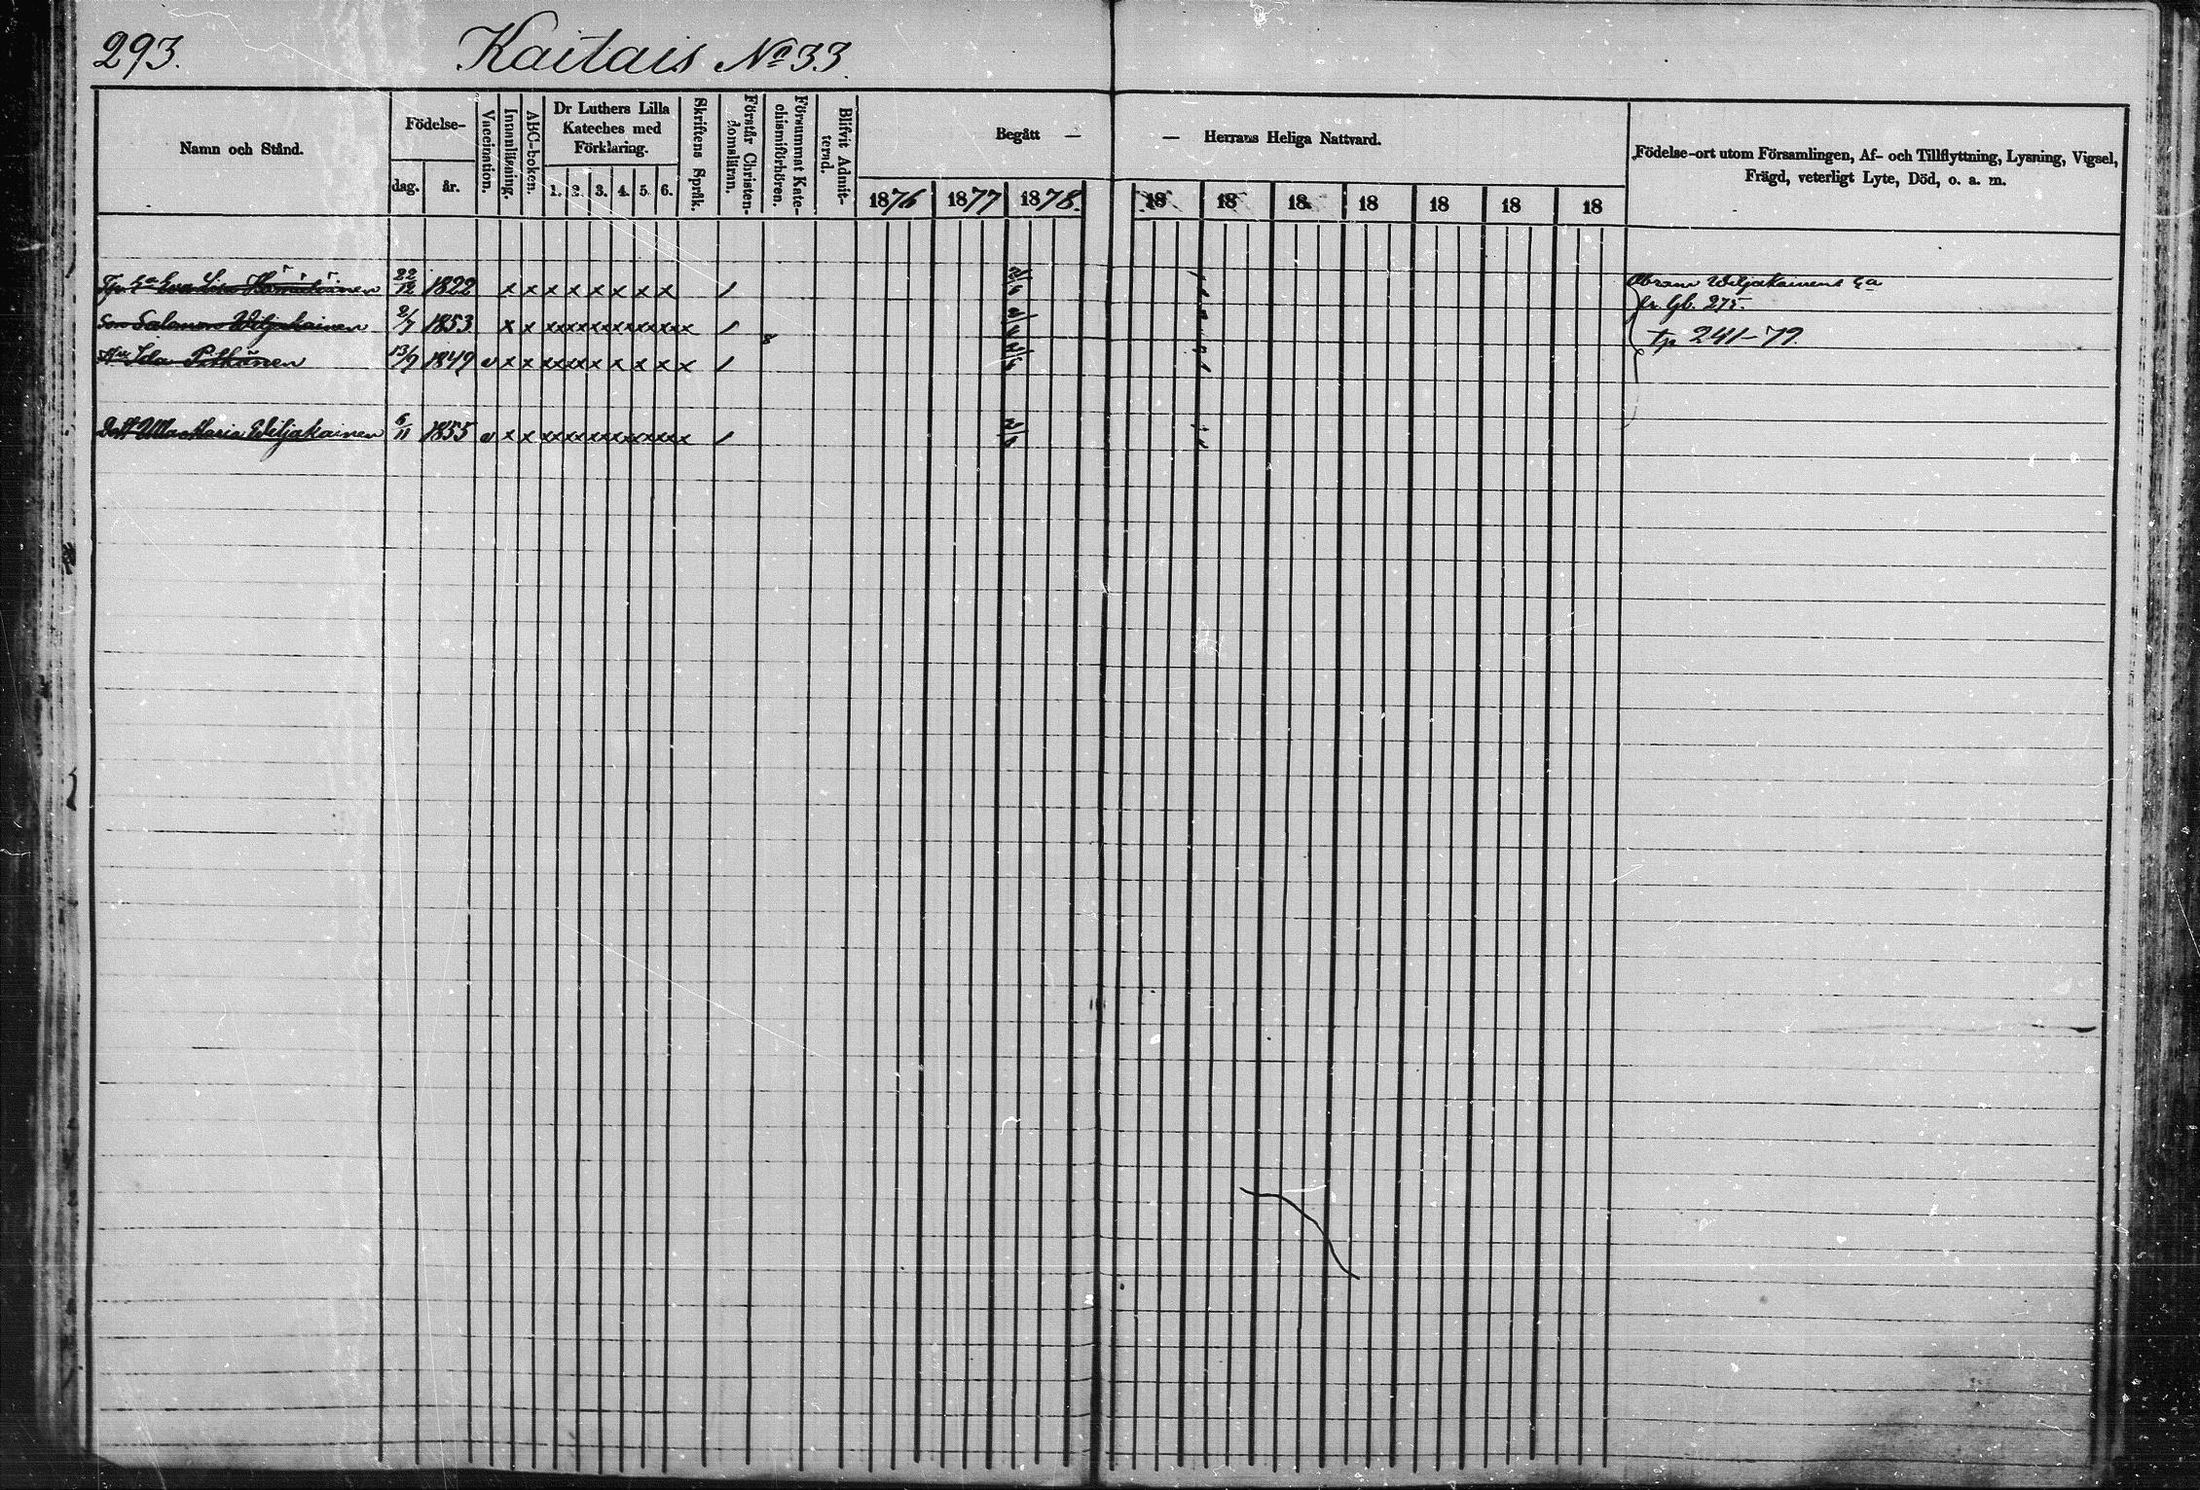 293.
Kaitais No 33.
Namn och Stånd.
Födelse-
dag.
år.
Vaccination.
Innanläsning.
ABC-boken.
Dr Luthers Lilla
Kateches med
Förklaring.
1. 2. 3. 4. 5. 6.
Skriftens Språk.
Förstår Christen-
domsläran.
Försummat Kate-
chismiförhören.
Blifvit Admit-
terad.
Begått —
— Herrans Heliga Nattvard.
1876 1877 1878.
18 18 18 18 18 18 18
Födelse-ort utom Församlingen, Af- och Tillflyttning, Lysning, Vigsel,
Frägd, veterligt Lyte, Död, o. a. m.
Eva Lisa 22/12 1822 x x x x x x x x
Abram Wiljakainens Ea
fr. Gb. 275.
Son Salomon Wiljakainen 2/7 1853 x x xxxxxxxxxxx
tp 241-79.
Hu Ida Pitkänen 13/9 1849 v x x xxxx x x x x x
Dott Ulla Maria Wiljakainen 6/11 1855 v x x xxxxxxxxxxx